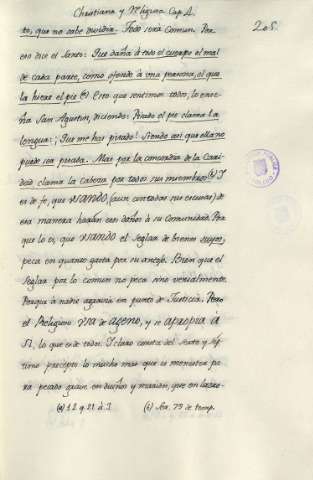 Christiana y Religiosa Cap. 4.
205.
to, que no sabe Todo será Comun. Por
eso dice el Santo: Que daña à todo el cuerpo el mal
de cada parte, como ofende à una persona, el que
la hiere el pie Esto que sentimos todos, lo ense-
ña San Agustin, diciendo: Pisado el pie clama la
lengua: ¡Que me hos pisado! Siendo asi que ella no
puede ser pisada. Mas por la concordia de la Cari-
dad clama la cabeza por todos sus miembros Y
es de fe, que USANDO, (aun contadas sus escusas) de
esa manera hacian esos daños à su Comunidad. Por
que lo vi, que USANDO el Seglar de bienes suyos,
peca en quanto gasta por su antojo. Bien que el
Seglar por lo comun no peca sino venialmente.
Porque à nadie agravia en punto de Justicia. Pero
el Religioso USA de AGENO, y se APROPIA à
si, lo que es de todos. I claro consta del sexto y sép-
timo precepto lo mucho mas que es menester pa
ra pecado grave en dueños y maridos, que en ladro-
(a) 12 q. 21 à. 3. (t) Ser. 79 de temp.